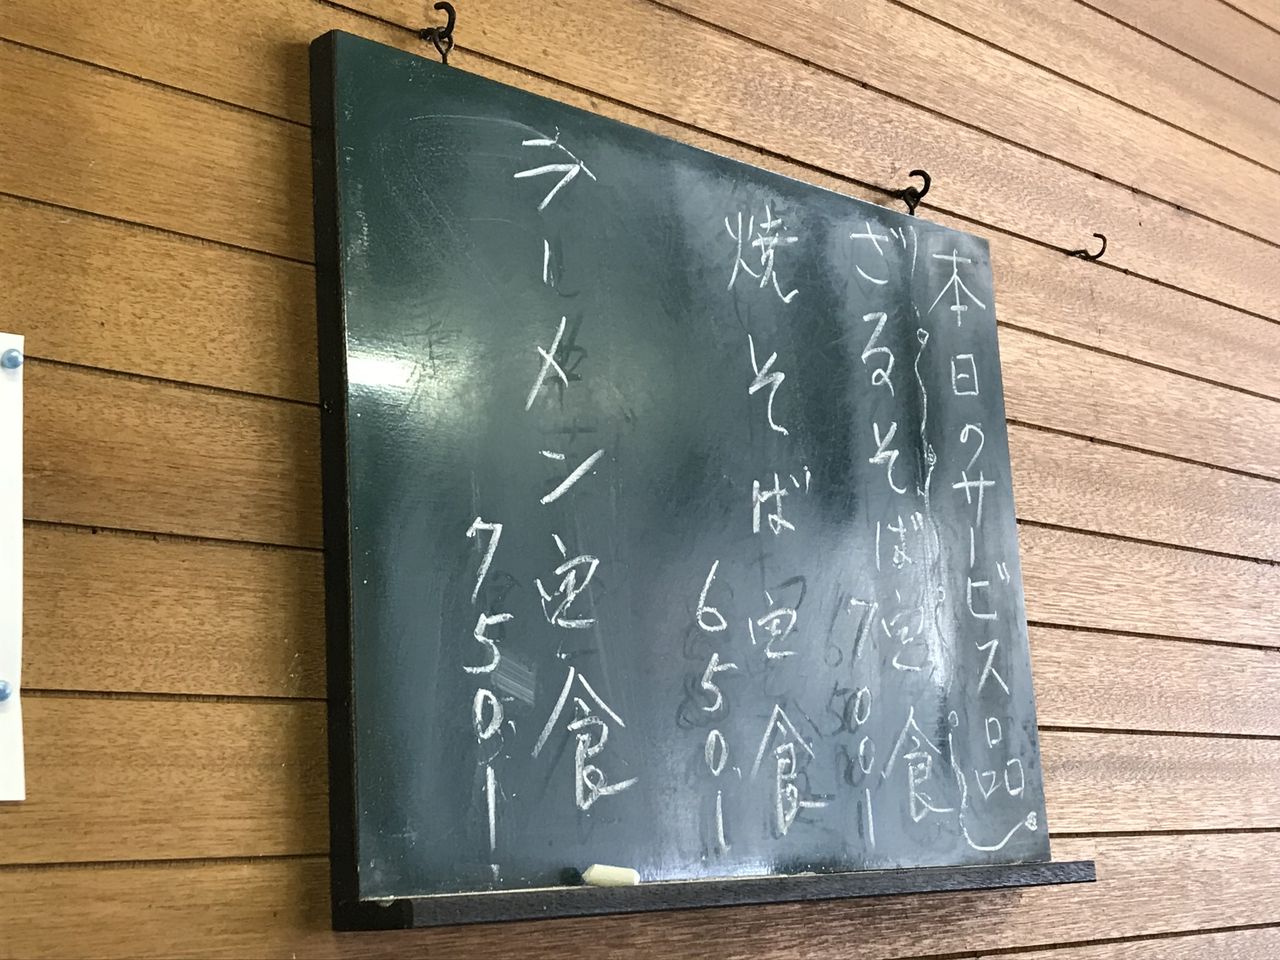 本日のサービス品
ざるそば定食
700-
焼そば定食
650.-
ラーメン定食
750.-